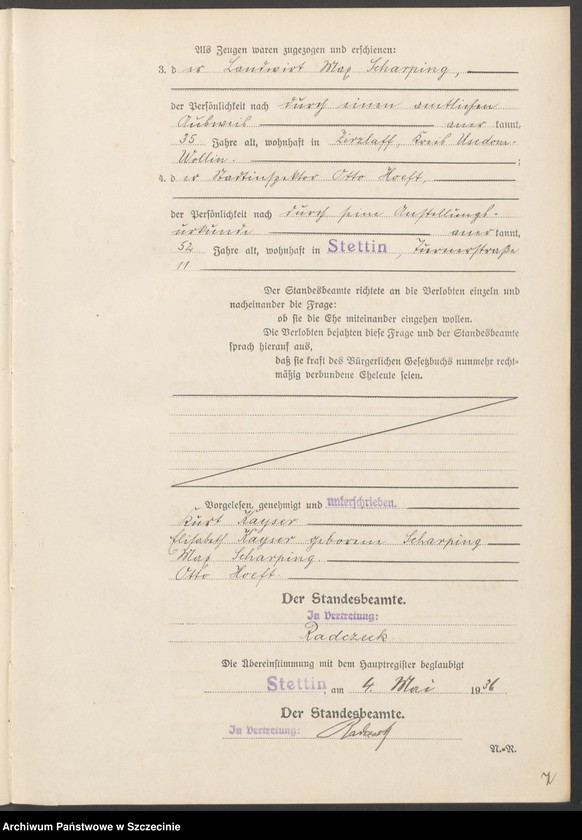 Als Zeugen waren zugezogen und erschienen:
3. der Landwirt Max Scharping,
der Persönlichkeit nach durch einen amtlichen
Ausweis anerkannt,
35 Jahre alt, wohnhaft in Zirzlaff, Kreis Usedom-
Wollin. ;
4. der Stadtinspektor Otto Hoeft,
der Persönlichkeit nach durch seine Anstellungs-
urkunde anerkannt,
52 Jahre alt, wohnhaft in Stettin, Turnerstraße
11
Der Standesbeamte richtete an die Verlobten einzeln und
nacheinander die Frage:
ob sie die Ehe miteinander eingehen wollen.
Die Verlobten bejahten diese Frage und der Standesbeamte
sprach hierauf aus,
daß sie kraft des Bürgerlichen Gesetzbuchs nunmehr recht-
mäßig verbundene Eheleute seien.
Vorgelesen, genehmigt und unterschrieben.
Kurt Kayser
Elisabeth Kayser geborene Scharping
Max Scharping.
Otto Hoeft.
Der Standesbeamte.
In Vertretung:
Radczuck.
Die Übereinstimmung mit dem Hauptregister beglaubigt
Stettin, am 4. Mai 1936
Der Standesbeamte.
In Vertretung:
N.=R.
Archiwum Państwowe w Szczecinie